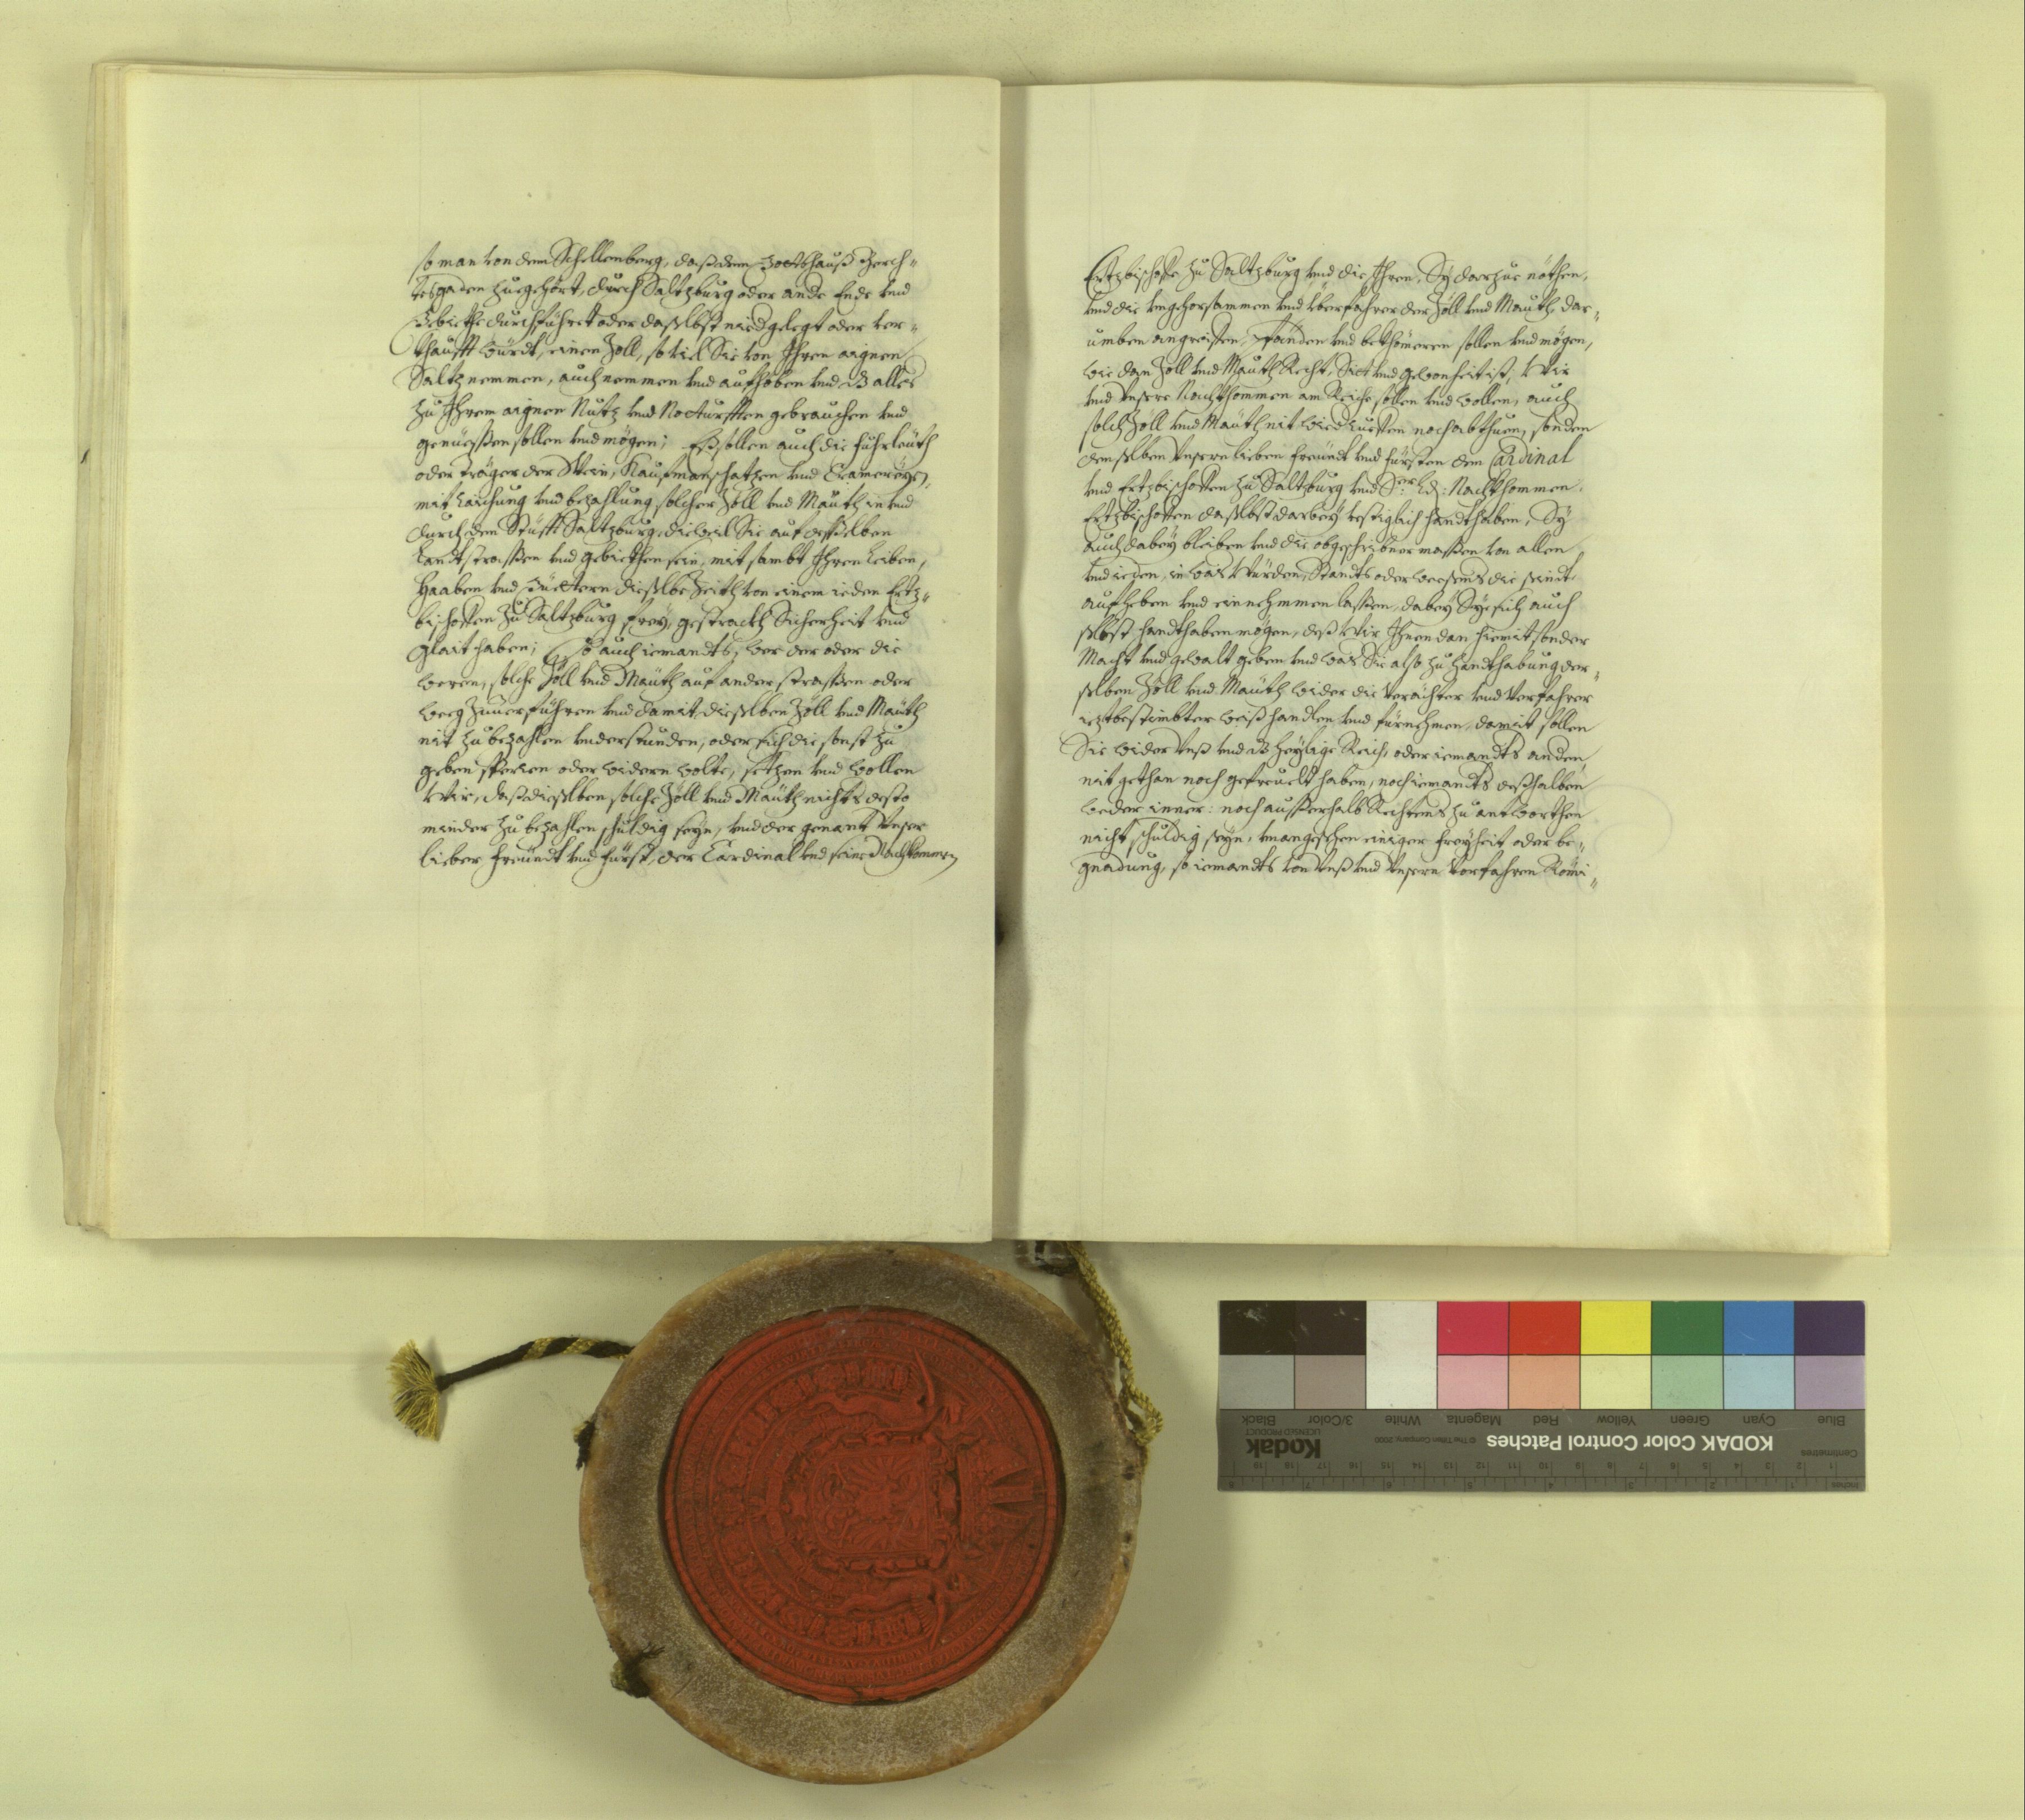 so man von dem Schellenberg, daß dem Gottshauß Berch-
tesgaden zuegehört, durch Saltzburg oder ande Ende vnd
Gebiethe durchführt oder daselbst nidgelegt oder ver-
khaufft würdt, einen Zoll, so vil Sie von Ihren aignen
Saltz nemmen, auch nemmen vnd aufhöben vnd dz alles
zu Ihrem aignen Nutz vnd Notturfften gebrauchen vnd
genüessen sollen vnd mögen; Eß sollen auch die fuhrleuth
oder träger der Wein, Kaufmanschatzen vnd Cramereyen,
mit raichung vnd bezahlung solcher Zöll vnd Mauth in vnd
durch den Stüfft Saltzburg, dieweil Sie auf desselben
Landtstrassen vnd gebiethen sein, mit sambt Ihren Leiben,
Haaben vnd Güettern dieselbe Zeith von einem ieden Ertz-
bischoffen zu Saltzburg frey, gestrackh Sicherheit vnd
Glait haben; So auch iemandts, wer der oder die
weren, solche Zöll vnd Mauth auf ander strassen oder
weeg zuuerführen vnd damit dieselben Zöll vnd Mauth
nit zu bezahlen vnderstunden, oder sich die sonst zu
geben sperren oder widern wolte, setzen vnd wollen
Wir, daß dieselben solche Zöll vnd Mauth nichts desto
minder zu bezahlen schuldig seyn, vnd der genant Vnser
lieber freundt vnd fürst, der Cardinal vnd seine Nachkommen
Ertzbischoffe zu Saltzburg vnd die Ihren, Sy darzue nöthen,
vnd die vngehorsammen vnd überfahrer der Zöll vnd Mauth, dar-
umben angreiffen, Pfänden vnd bekhömeren sollen vnd mögen,
wie dan Zoll vnd Mauth Recht, Sit vnd gewonheit ist, Wir
vnd Vnsere Nachkhommen am Reiche sollen vnd wollen, auch
solch Zöll vnd Mauth nit widrueffen noch abthuen, sondern
denselben Vnsern lieben freundt vnd fürsten dem Cardinal
vnd Ertzbischoffen zu Saltzburg vnd Sr: Ld: Nachkhommen
Ertzbischoffen daselbst darbey vestiglich handthaben, Sy
auch dabey bleiben vnd die obgeschribner massen von allen
vnd ieden, in was Würden, Standts oder weesens die seindt
aufheben vnd einnehmmen lassen, dabey Sye sich auch
selbst handthaben mögen, deß Wir Ihnen dan hiemit sonder
Macht vnd gewalt geben vnd was Sie also zu handthabung der-
selben Zöll vnd Mauth wider die Verachter vnd Verfahrer
ieztbestimbter weiß handlen vnd fürnehmen, damit sollen
Sie wider Vnß vnd dz heylige Reich, oder iemandts anden
nit gethan noch gefreuelt haben, noch iemandts deßhalben
weder inner: noch ausserhalb Rechtens zu antworthen
nicht schuldig seyn, vnangesehen einiger freyheit oder be-
gnadung, so iemandts von Vnß vnd Vnsern Vorfahren Römi-
KODAK Color Control Patches
Kodak
LICENSED PRODUCT
© The Tiffen Company, 2000
Blue Cyan Green Yellow Red Magenta White 3/Color Black
Centimetres
Inches